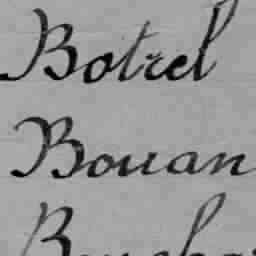 Botrel
Bouan